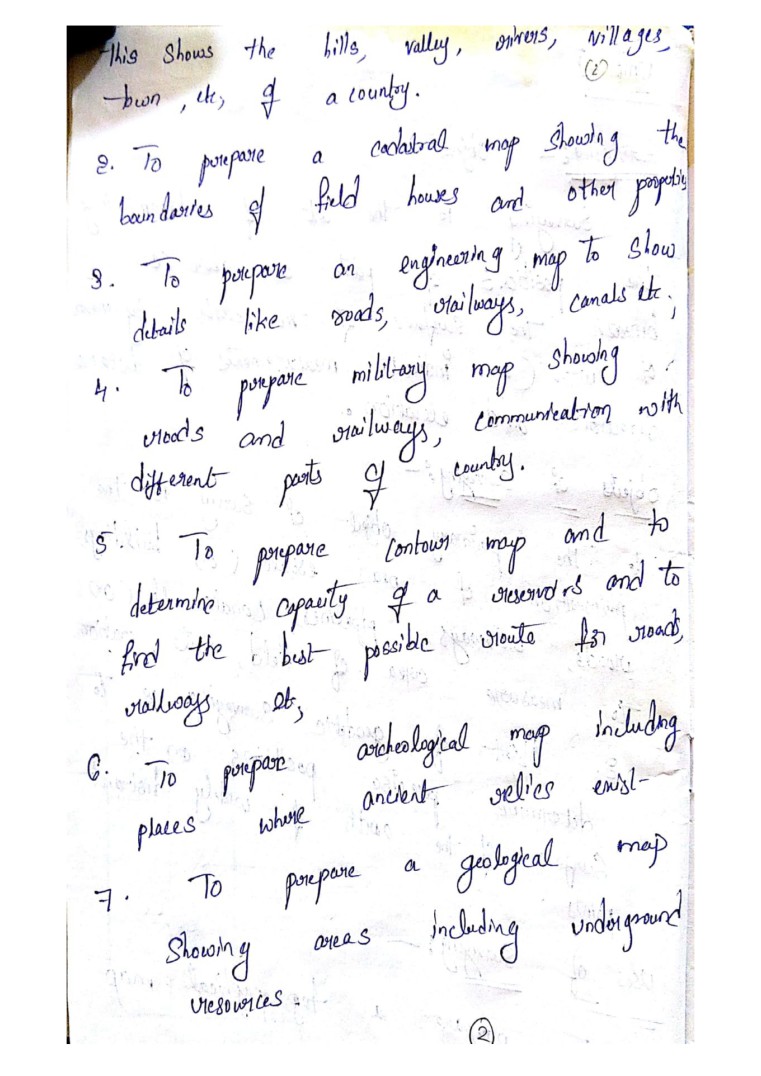 This shows the hills, valley, rivers, villages,
(2)
town, etc, of a country.
2. To prepare a cadastral map showing the
boundaries of field houses and other property
3. To prepare an engineering map to show
details like roads, railways, canals etc,
4. To prepare military map showing
roads and railways, communication with
different parts of country.
5. To prepare contour map and to
determine capacity of a reservors and to
find the best possible route for roads,
railways etc,
6. To prepare archeological map including
places where ancient relics exist
7. To prepare a geological map
showing areas including underground
resources.
2